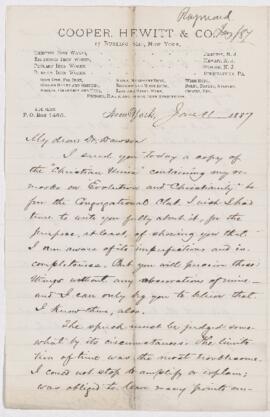 Raymond
Jan/87
COOPER, HEWITT & CO.
17 BURLING SLIP, NEW YORK.
TRENTON IRON WORKS,
RINGWOOD IRON WORKS,
PEQUEST IRON WORKS,
DURHAM IRON WORKS.
TRENTON, N. J.
P.O. Box
New York, 1887
My dear Dr. Dawson
I send you today a copy of
the "Christian Union" containing my re-
marks on "Evolution and Christianity" be-
fore the Congregational Club. I wish I had
time to write you fully about it, for the
purpose, at least, of showing you that
I am aware of its imperfections and in-
completeness. But you will perceive these
things without any observations of mine—
and I can only beg you to believe that
I know them, also.
The speech must be judged some-
what by its circumstances. The limita-
tion of time was the most troublesome.
I could not stop to amplify or explain;
was obliged to leave many points un-